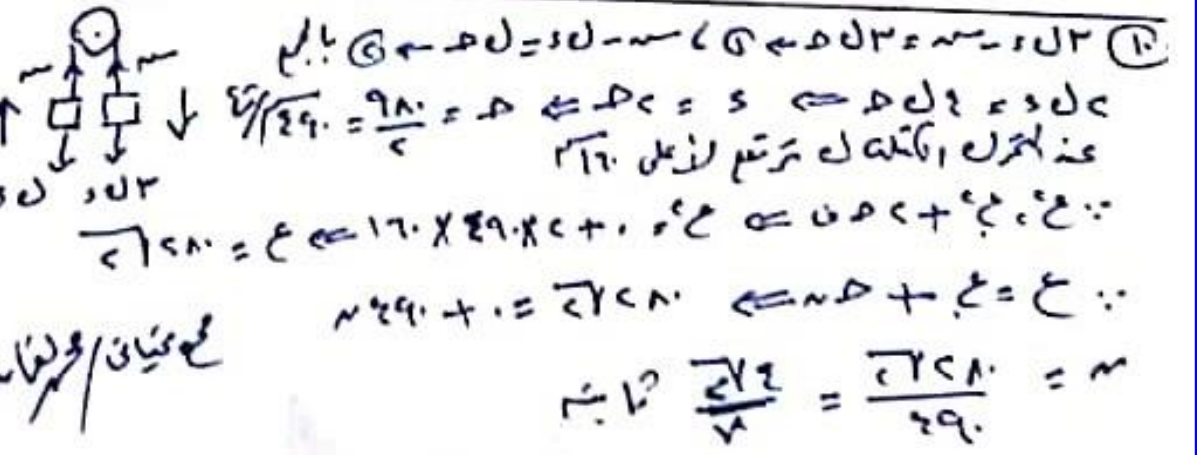 ١٠ ٣ل‌د - ~ = ٣ل‌ح ← ① ، ~ - ل‌د = ل‌ح ← ② بالجمع
٢ل‌د = ٤ل‌ح ⇐ د = ٢ح ⇐ ح = ٩٨٠/٢ = ٤٩٠ سم/ث٢
عند تحرك الكتلة ل ترتفع لأعلى ١٦٠ سم
∵ ع٢ = ع.٢ + ٢ح ف ⇐ ع٢ = ٠ + ٢×٤٩٠×١٦٠ ⇐ ع = ٢٨٠√٢
∵ ع = ع. + ح ن ⇐ ٢٨٠√٢ = ٠ + ٤٩٠ ن
ن = ٢٨٠√٢/٤٩٠ = ٤√٢/٧ ثانية
~ ~
٣ل‌د ل‌د